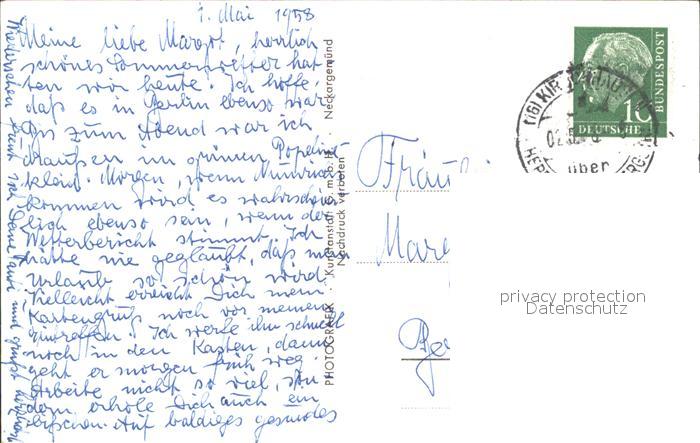 1. Mai 1958
Meine liebe Margot, herrlich
schönes Sommerwetter hat-
ten wir heute. Ich hoffe,
daß es in Berlin ebenso war
Bis zum Abend war ich
draußen im grünen Popeline-
kleid. Morgen, wenn
kommen wird es wahrschein-
lich ebenso sein, wenn der
Wetterbericht stimmt. Ich
hätte nie geglaubt, daß mein
Urlaub so schön wird.
Vielleicht erreicht Dich mein
Kartengruß noch vor meinem
Eintreffen. Ich werfe ihn schnell
noch in den Kasten, dann
geht er morgen früh weg.
Arbeite nicht so viel, son-
dern erhole Dich auch ein
bißchen. Auf baldiges gesundes
Wiedersehen
PHOTOGRAFIK · Kunstanstalt G. m. b. H. · Neckargemünd
Nachdruck verboten
Fräul
Mar
Be
BUNDESPOST
10
DEUTSCHE
(16) KIR
über
HEP
privacy protection
Datenschutz